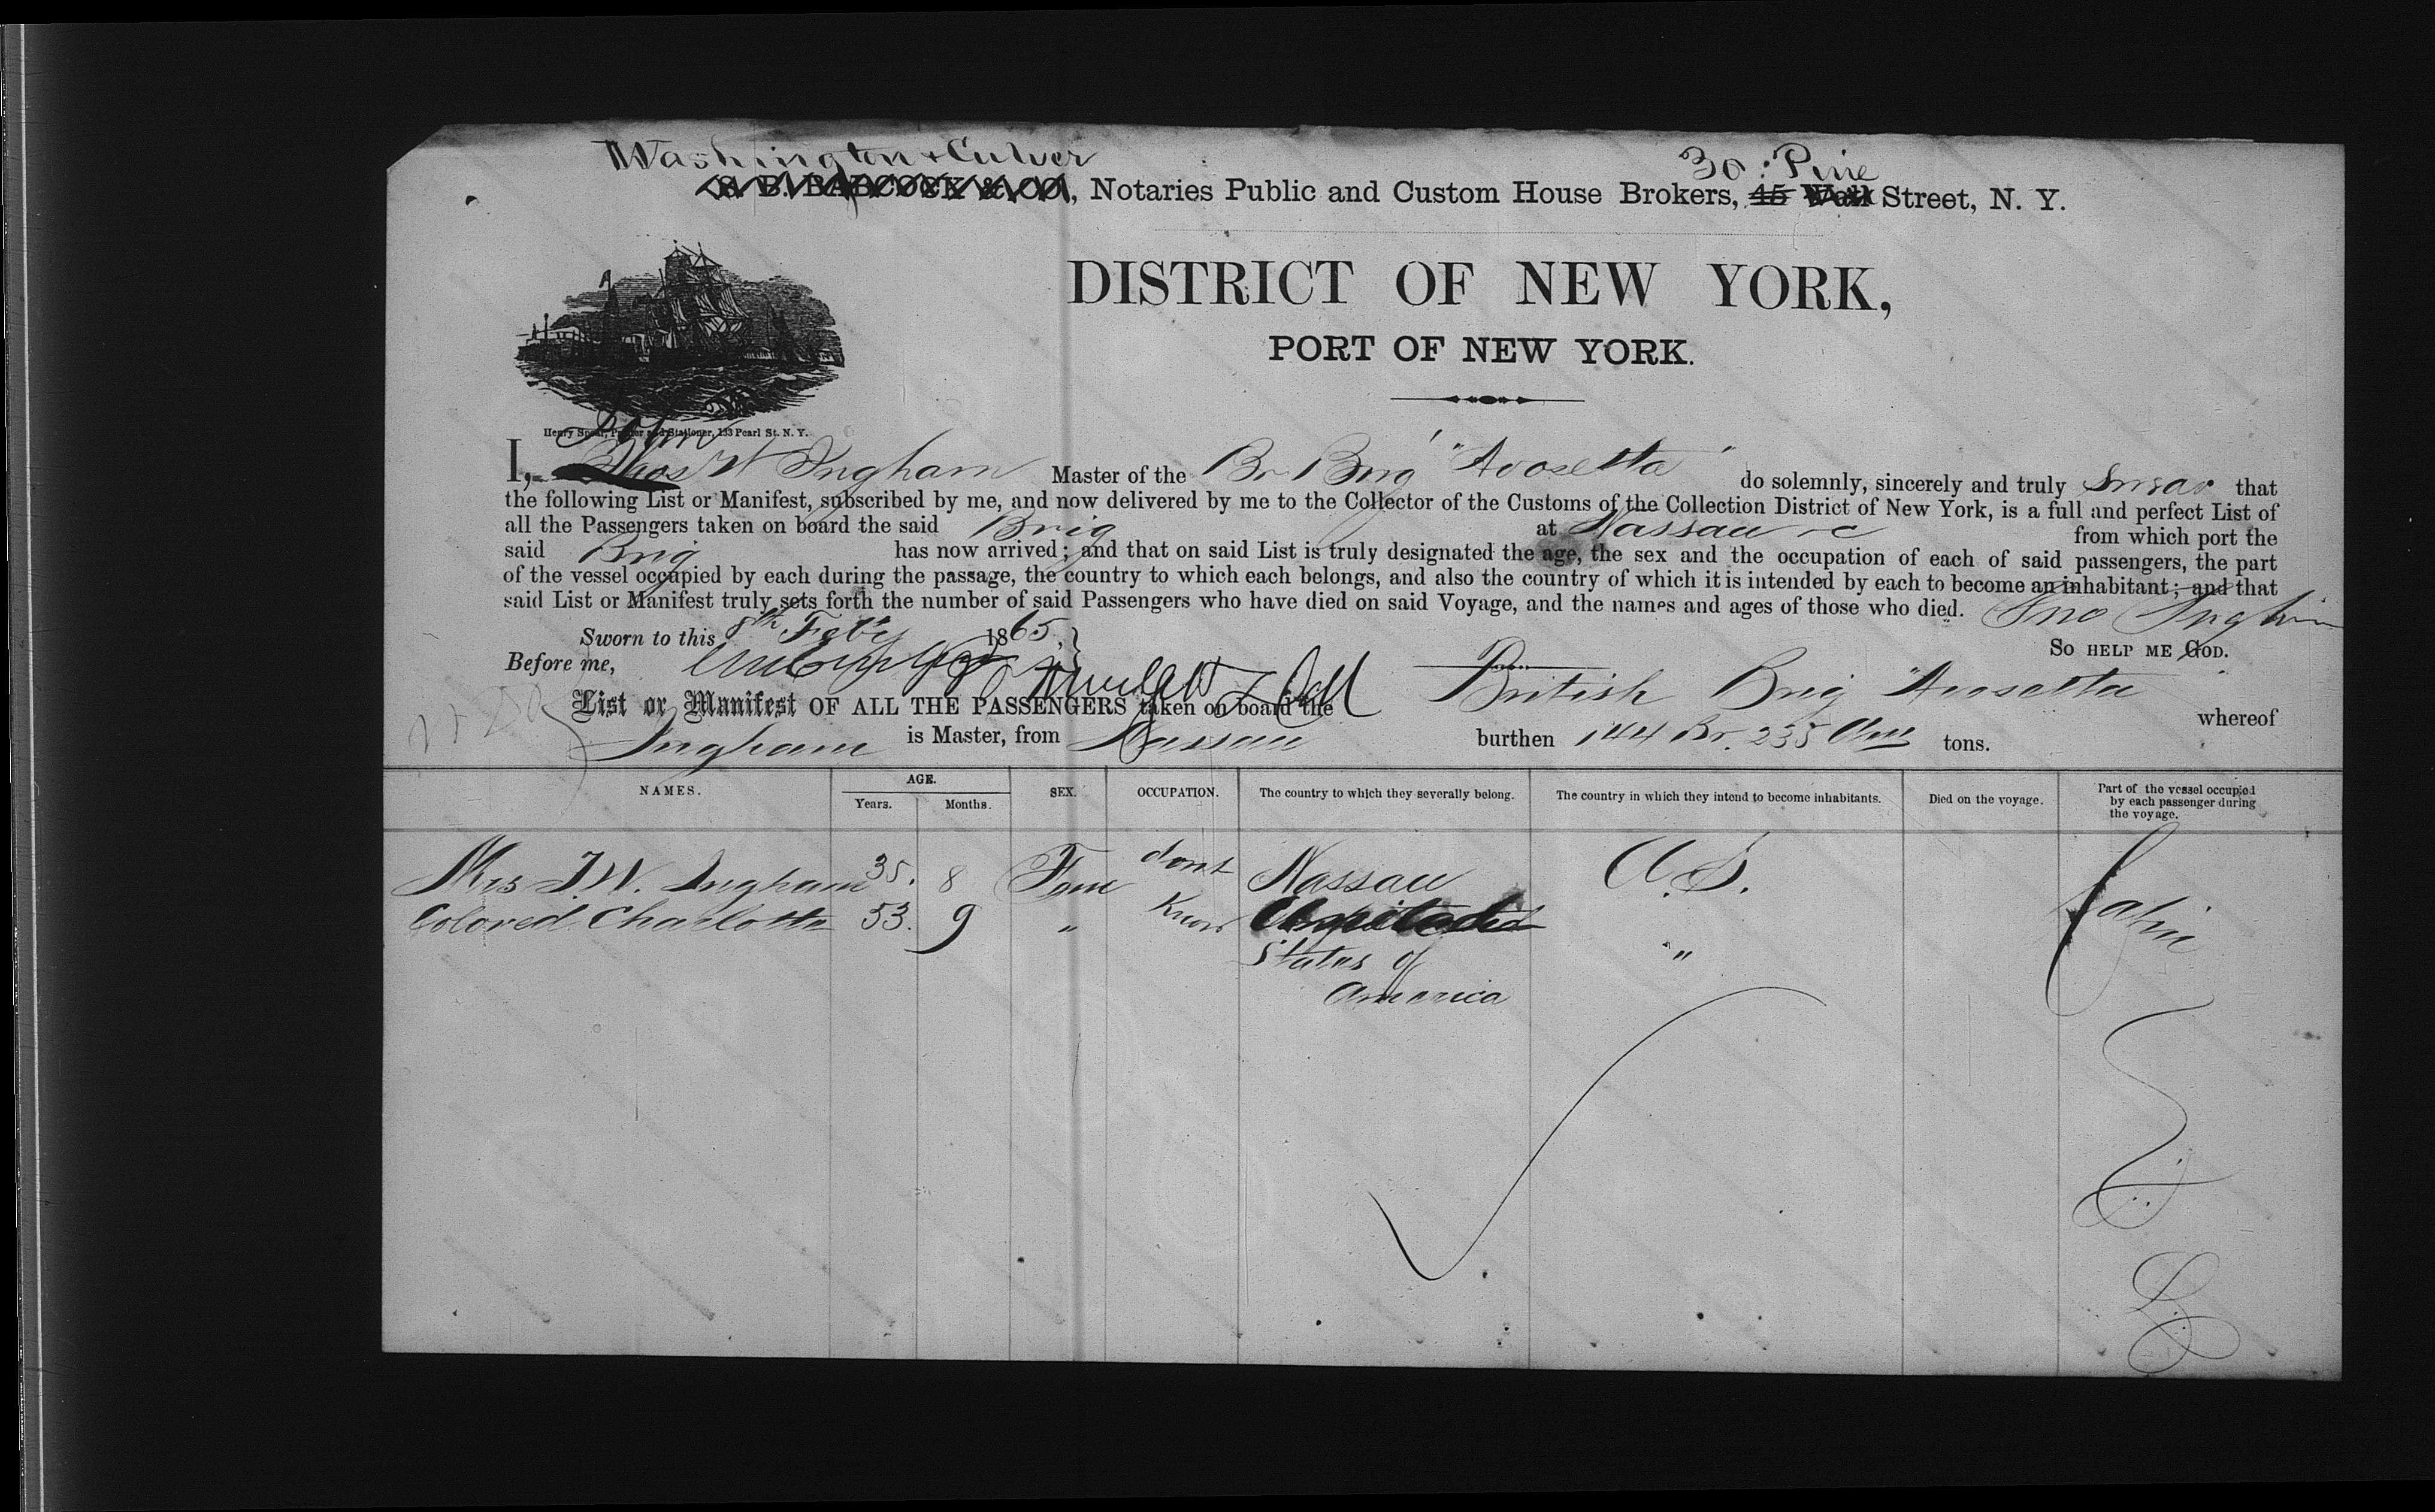 Washington & Culver
30 Pine
S. B. BABCOCK & CO., Notaries Public and Custom House Brokers, 45 Wall Street, N. Y.
DISTRICT OF NEW YORK,
PORT OF NEW YORK.
Henry Spear, Printer and Stationer, 133 Pearl St. N. Y.
John
I, Thos W Ingham Master of the Br Brig "Avosetta" do solemnly, sincerely and truly swear that
the following List or Manifest, subscribed by me, and now delivered by me to the Collector of the Customs of the Collection District of New York, is a full and perfect List of
all the Passengers taken on board the said Brig at Nassau from which port the
said Brig has now arrived; and that on said List is truly designated the age, the sex and the occupation of each of said passengers, the part
of the vessel occupied by each during the passage, the country to which each belongs, and also the country of which it is intended by each to become an inhabitant; and that
said List or Manifest truly sets forth the number of said Passengers who have died on said Voyage, and the names and ages of those who died. Jno Ingham
Sworn to this 8th Feby 1865,
So HELP ME GOD.
Before me,
List or Manifest OF ALL THE PASSENGERS taken on board the British Brig "Avosetta" whereof
Ingham is Master, from Nassau burthen 144 Br. 235 Am tons.
NAMES. AGE. SEX. OCCUPATION. The country to which they severally belong. The country in which they intend to become inhabitants. Died on the voyage. Part of the vessel occupied by each passenger during the voyage.
Years. Months.
Mrs J.W. Ingham 35. 8 Fem dont Nassau U.S. Cabin
Colored Charlotte 53. 9 " Know United "
States of
America